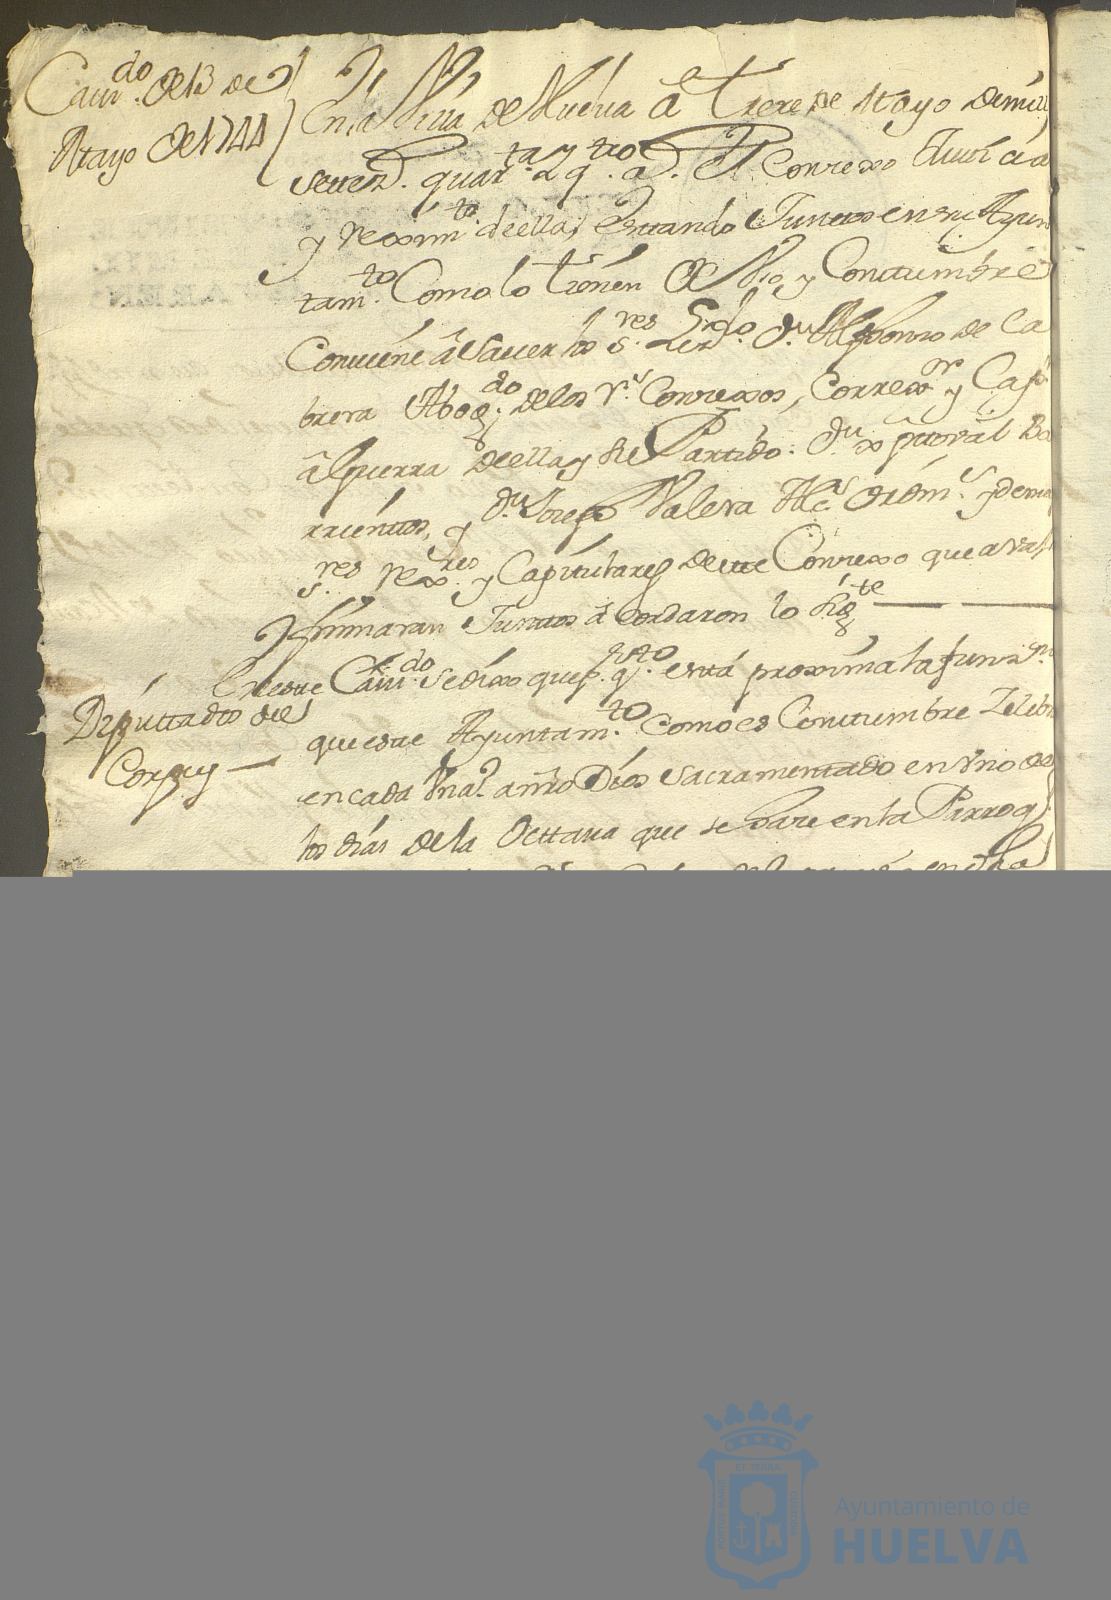 Cavdo. de 13 de
Mayo de 1744
En la Villa de Huelva a treze de Mayo de mill
settesz. quarta y qtro. a. El Conzexo Justicia
y Reximto. de ella, estando Juntos en su Ayun
tamto. Como lo tienen de Vso y Costumbre
Combiene a Saver los Sres. Lizdo. Dn. Alphonso de la
brera Abogdo. de los Rs. Conzexos, Correxor. y Capn.
a guerra de ella y su Partido: Dn. Xptoval Ba
rrientos, y Dn. Joseph Valera Alcs. Ordins. y demas
Sres. Rexres. y Capitulares de este Conzexo que avaxo
firmaran Juntos acordaron lo sigte
Diputtados del
Corpus
En este Cavdo. se dixo que p. qto. está proxima la funzn.
que este Ayuntamto. como es Costumbre Zelebra
en cada Vn año a nro Dios Sacramentado en Vno de
los dias de la Octtava que se haze en la Parroql
Ayuntamiento de
HUELVA